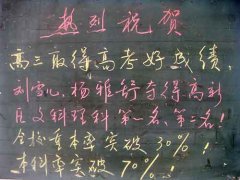 热烈祝贺
高三取得高考好成绩,
刘雪儿、杨雅舒夺得高新
区文科理科第一名、第二名!
全校重本率突破30%!
本科率突破70%!